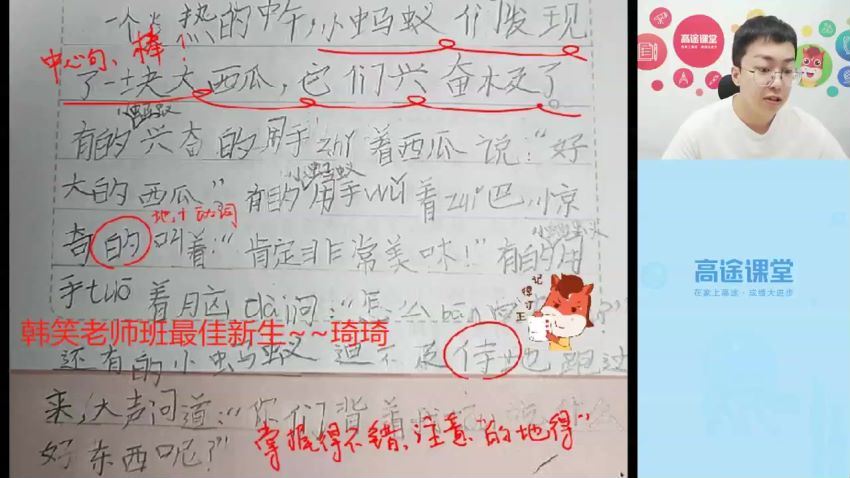 一个炎热的中午，小蚂蚁们发现
中心句，棒！
了一块大西瓜，它们兴奋极了。
小蚂蚁
有的兴奋的用手zhǐ着西瓜说：“好
小蚂蚁
大的西瓜”有的用手wǔ着zuǐ巴，惊
地＋动词
小蚂蚁
奇的叫着：“肯定非常美味！”有的用
手tuō着脑dài问：“怎么bān
记得订正
韩笑老师班最佳新生~~琦琦
还有的小蚂蚁迫不及待地跑过
来，大声问道：“你们背着我
好东西呢？”
掌握得不错，注意“的地得”
高途课堂
在家上高途·成绩大进步
高途课堂
在家上高途·成绩大进步